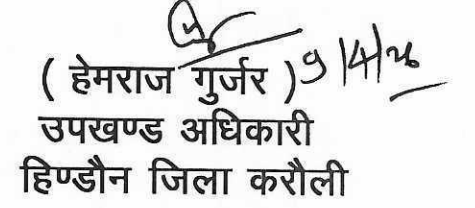 ( हेमराज गुर्जर ) 9/4/26
उपखण्ड अधिकारी
हिण्डौन जिला करौली